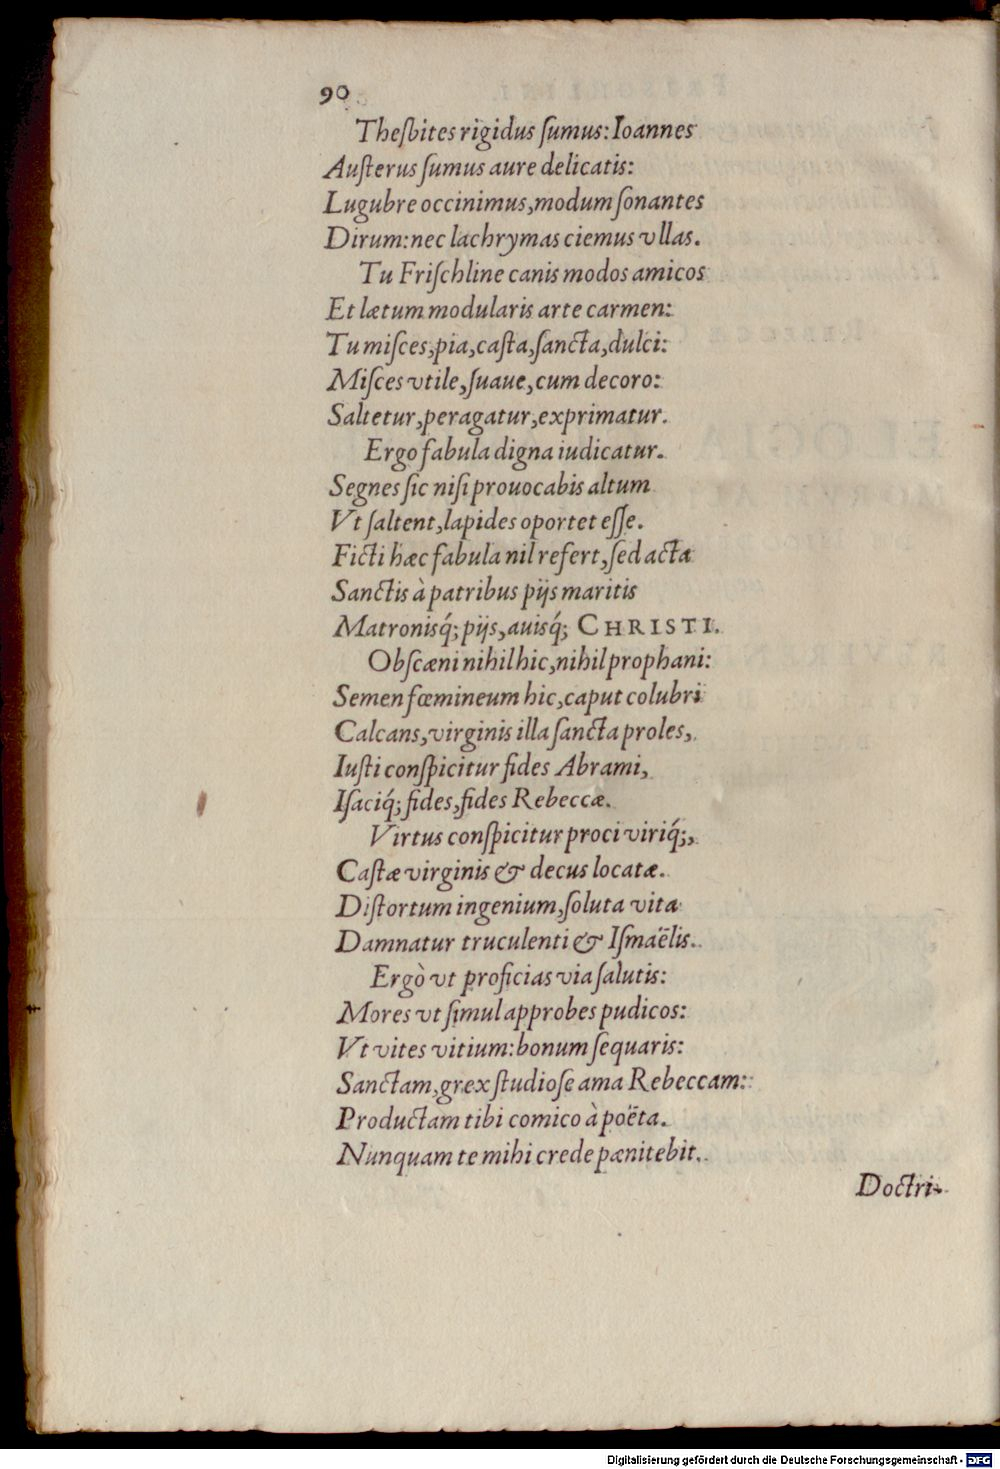 90
Theſbites rigidus ſumus: Ioannes
Auſterus ſumus aure delicatis:
Lugubre occinimus, modum ſonantes
Dirum: nec lachrymas ciemus vllas.
Tu Friſchline canis modos amicos
Et lætum modularis arte carmen:
Tu miſces, pia, caſta, ſancta, dulci:
Miſces vtile, ſuaue, cum decoro:
Saltetur, peragatur, exprimatur.
Ergo fabula digna iudicatur.
Segnes ſic niſi prouocabis altum
Vt ſaltent, lapides oportet eſſe.
Ficti hæc fabula nil refert, ſed acta
Sanctis à patribus pijs maritis
Matronisq́; pijs, auisq́; CHRISTI.
Obſcæni nihil hic, nihil prophani:
Semen fœmineum hic, caput colubri
Calcans, virginis illa ſancta proles,
Iuſti conſpicitur fides Abrami,
Iſaciq́; fides, fides Rebeccæ.
Virtus conſpicitur proci viriq́;,
Caſtæ virginis & decus locatæ.
Diſtortum ingenium, ſoluta vita
Damnatur truculenti & Iſmaëlis.
Ergò vt proficias via ſalutis:
Mores vt ſimul approbes pudicos:
Vt vites vitium: bonum ſequaris:
Sanctam, grex ſtudioſe ama Rebeccam:
Productam tibi comico à poëta.
Nunquam te mihi crede pænitebit.
Doctri-
Digitalisierung gefördert durch die Deutsche Forschungsgemeinschaft - DFG